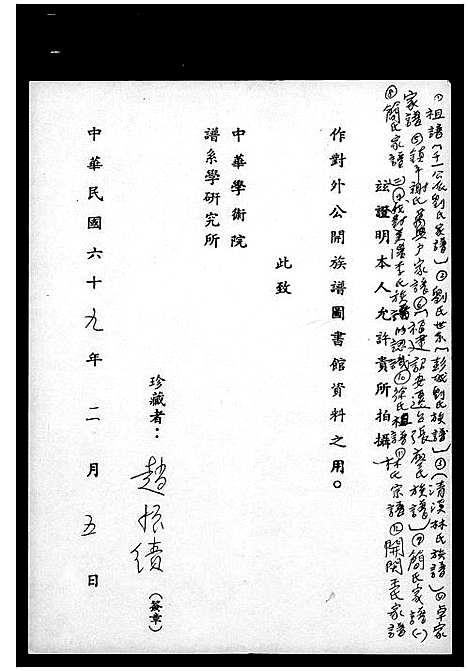 ①祖譜(十一公派劉氏家譜)②劉氏世系(彭城劉氏族譜)③(清溪林氏族譜)④卓家
家譜⑤鎮平謝氏 戶家譜⑥(福建詔安遷台張廖氏族譜)⑦簡氏家譜(一)
⑧簡氏家譜(二)⑨ 李氏族譜的認識⑩徐氏祖譜⑪林氏宗譜⑫開閩王氏家譜
茲證明本人允許貴所拍攝
作對外公開族譜圖書館資料之用。
此致
中華學術院
譜系學研究所
珍藏者:趙振績(簽章)
中華民國六十九年二月五日